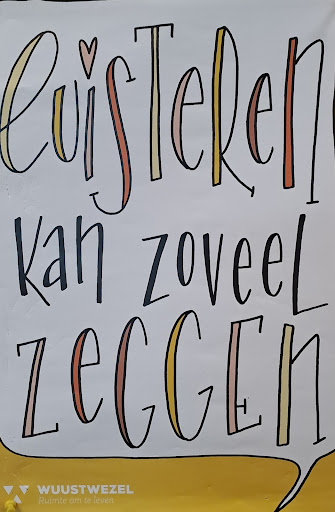 luisteren
kan zoveel
zeggen
WUUSTWEZEL
Ruimte om te leven